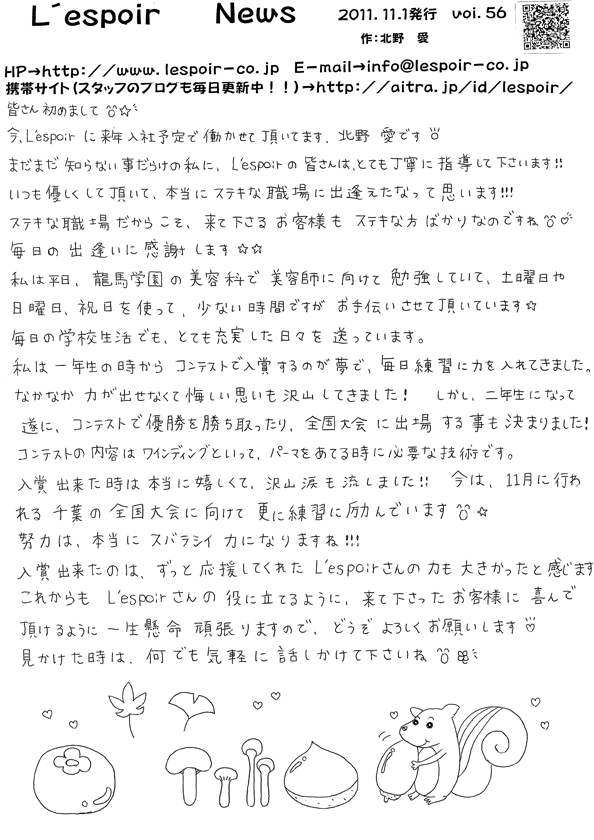 L´espoir News 2011.11.1発行 voi.56
作:北野 愛
HP→http://www.lespoir-co.jp E-mail→info@lespoir-co.jp
携帯サイト(スタッフのブログも毎日更新中!!)→http://aitra.jp/id/lespoir/
皆さん初めまして☆
今、L'espoir に来年入社予定で働かせて頂いてます、北野 愛です
まだまだ 知らない事だらけの私に、L'espoirの 皆さんは、とても丁寧に指導して下さいます!!
いつも優しくして頂いて、本当にステキな職場に出逢えたなって思います!!!
ステキな職場だからこそ、来て下さる お客様も ステキな方ばかりなのですね
毎日の出逢いに感謝します☆☆
私は平日、龍馬学園の美容科で美容師に向けて勉強していて、土曜日や
日曜日、祝日を使って、少ない時間ですが お手伝いさせて頂いています☆
毎日の学校生活でも、とても充実した日々を送っています。
私は一年生の時から コンテストで入賞するのが夢で、毎日練習に力を入れてきました。
なかなか 力が出せなくて悔しい思いも沢山してきました! しかし、二年生になって
遂に、コンテストで優勝を勝ち取ったり、全国大会に出場する事も決まりました!
コンテストの内容はワインディングといって、パーマをあてる時に必要な技術です。
入賞出来た時は本当に嬉しくて、沢山涙も流しました!! 今は、11月に行わ
れる千葉の全国大会に向けて更に練習に励んでいます☆
努力は、本当にスバラシイ力になりますね!!!
入賞出来たのは、ずっと応援してくれた L'espoirさんの力も大きかったと感じます
これからも L'espoirさんの役に立てるように、来て下さったお客様に喜んで
頂けるように一生懸命頑張りますので、どうぞよろしくお願いします
見かけた時は、何でも気軽に話しかけて下さいね